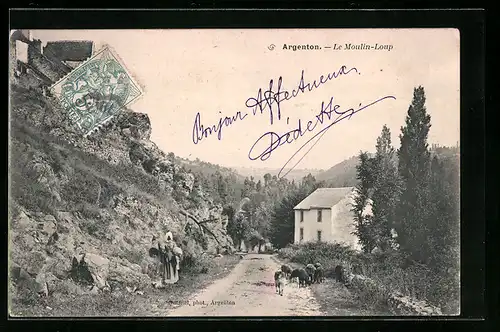 Argenton. — Le Moulin-Loup
Bonjour Affectueux
Dédette
phot., Argenton